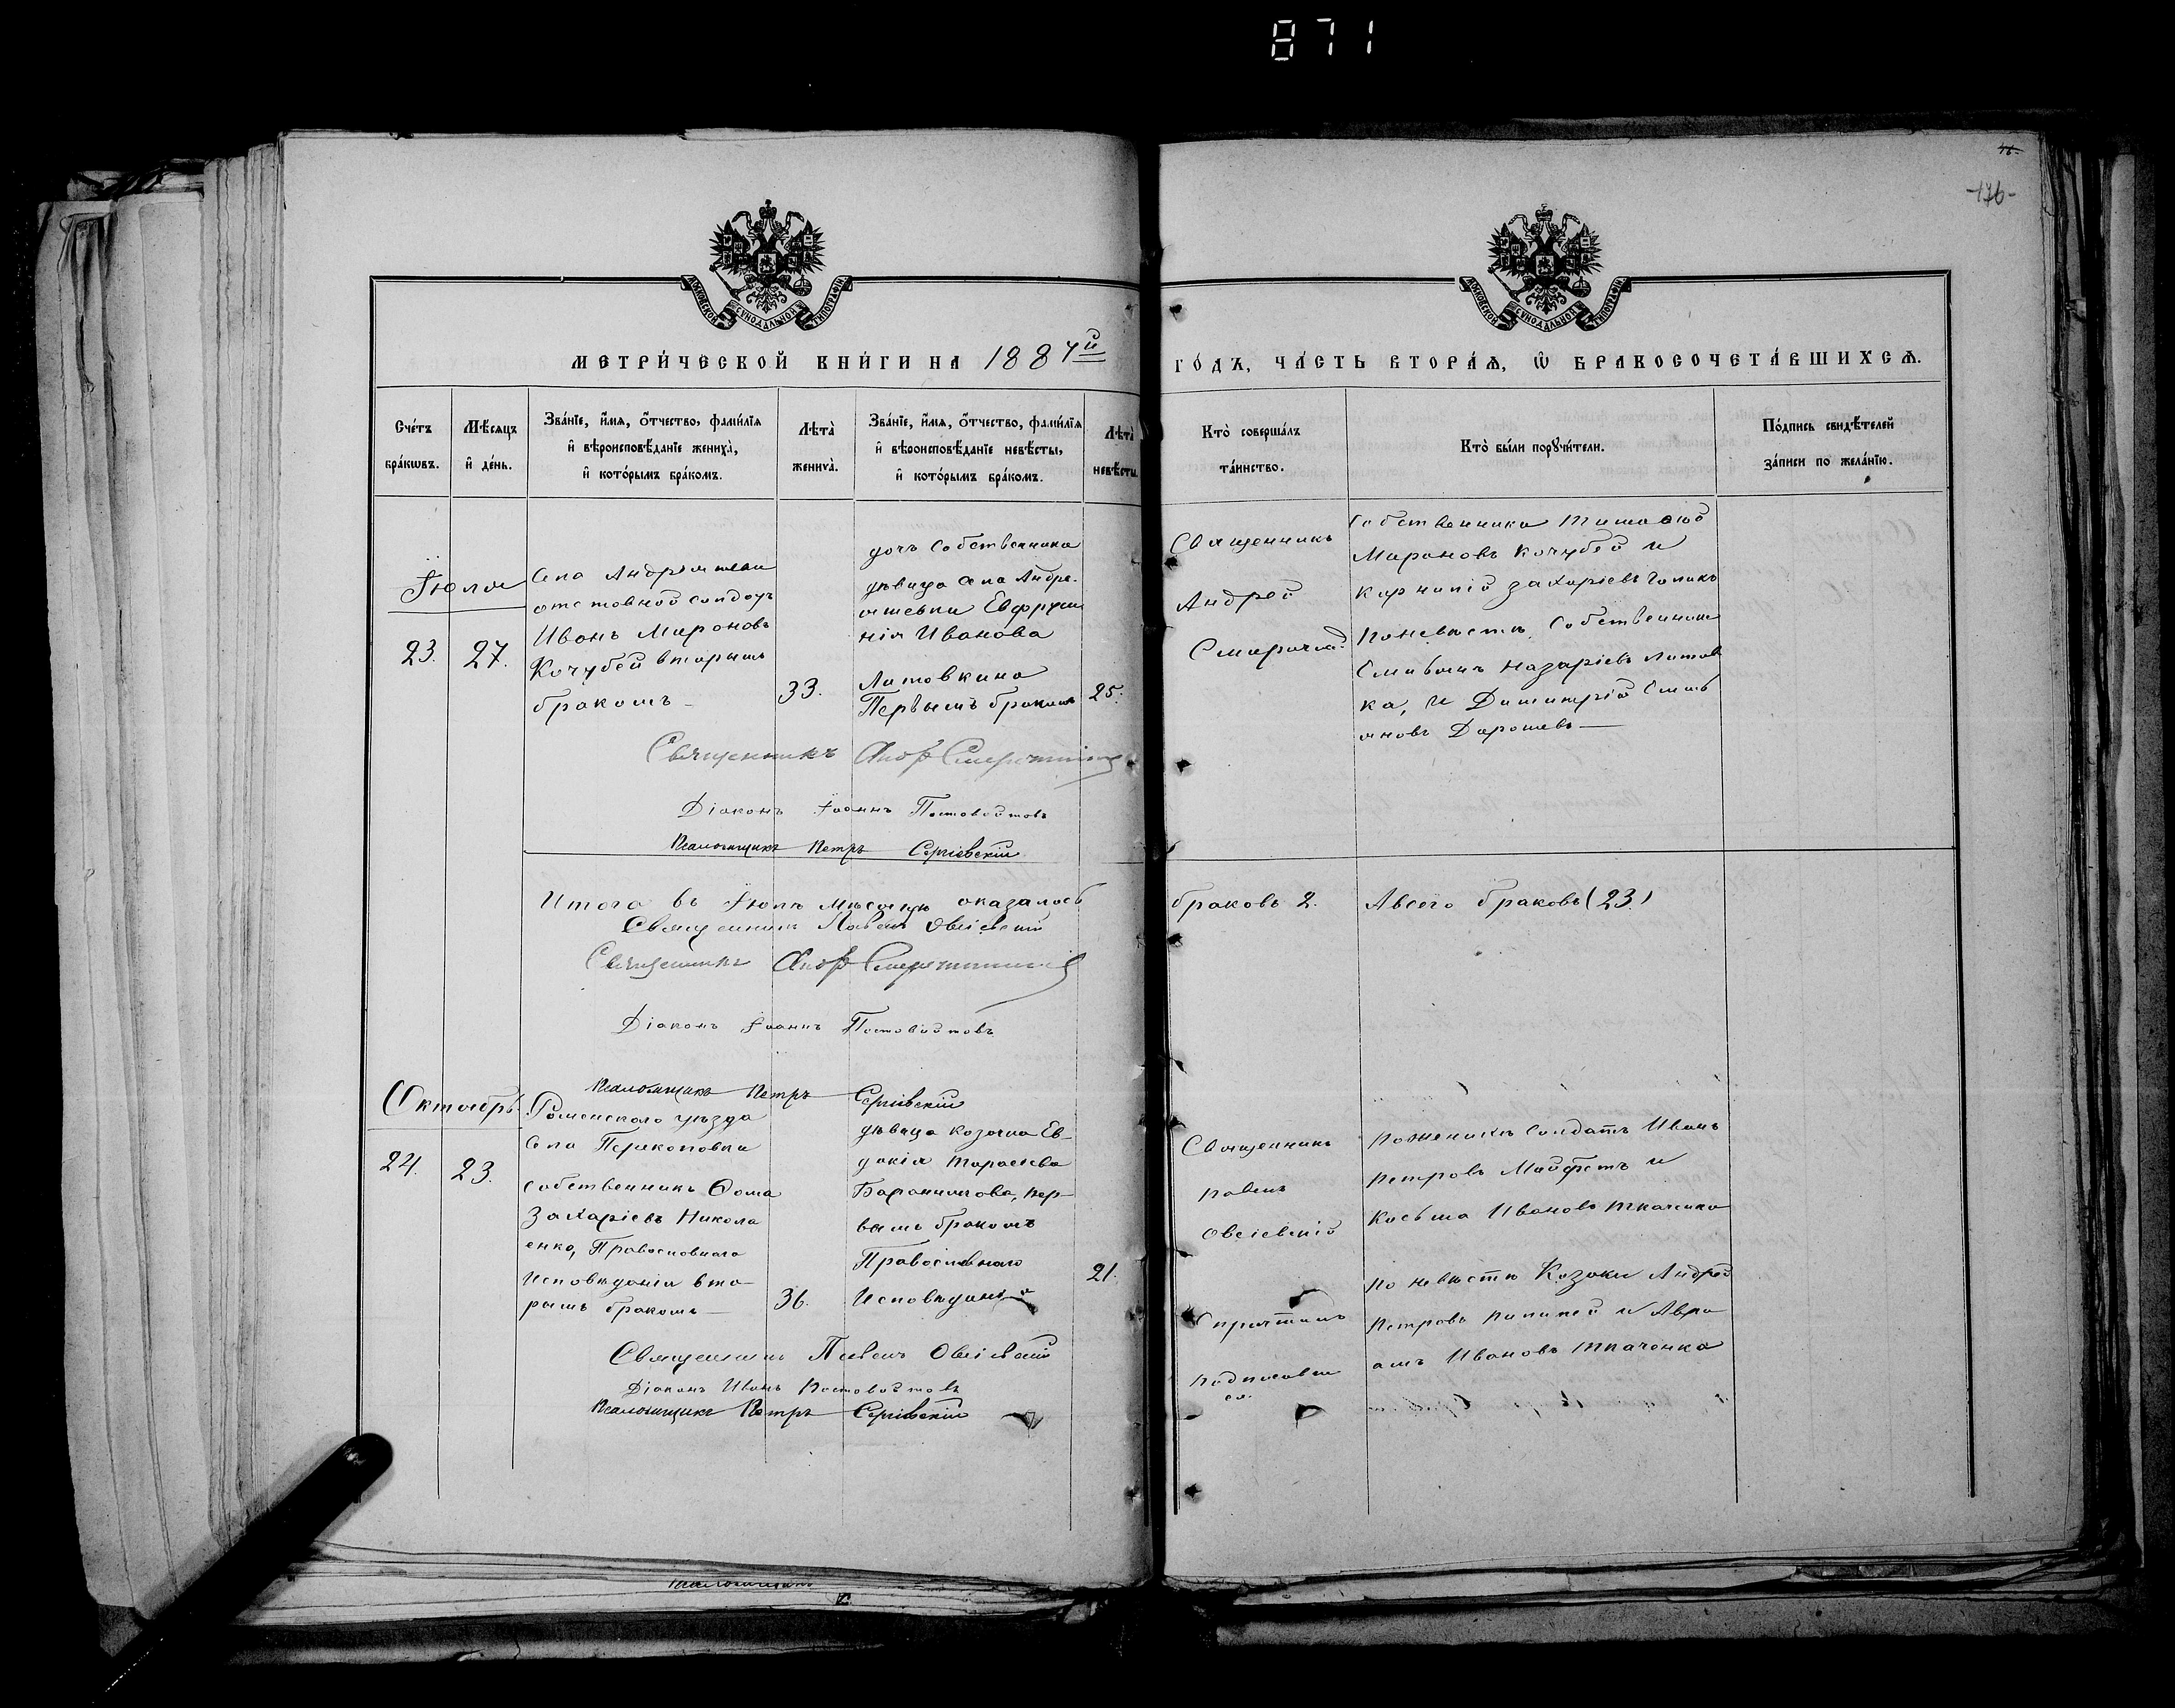 871
176
МОСКОВСКОЙ СѴНОДАЛЬНОЙ ТИПОГРАФІИ
МОСКОВСКОЙ СѴНОДАЛЬНОЙ ТИПОГРАФІИ
МЕТРИ́ЧЕСКОЙ КНИ́ГИ НА 1887й
ГО́ДЪ, ЧА́СТЬ ВТОРА́Ѧ, Ѡ҆ БРАКОСОЧЕТА́ВШИХСѦ.
Сче́тъ бра́кѡвъ.
Мѣ́сяцъ и҆ де́нь.
Зва́нїе, и҆́мѧ, ѻ҆́тчество, фами́лїѧ
и҆ вѣроисповѣ́данїе жениха̀,
и҆ кото́рымъ бра́комъ.
Лѣта̀ жениха̀.
Зва́нїе, и҆́мѧ, ѻ҆́тчество, фами́лїѧ
и҆ вѣроисповѣ́данїе невѣ́сты,
и҆ кото́рымъ бра́комъ.
Лѣта̀ невѣ́сты.
Кто̀ соверша́лъ
та́инство.
Кто̀ бы́ли порꙋчи́тели.
По́дпись свидѣ́телей
за́писи по жела́нїю.
Іюля
23.
27.
Села Андрияшевки
отставной солдатъ
Иванъ Мироновъ
Кочубей вторымъ
бракомъ
33.
дочь собственника
дѣвица села Андре-
яшевки Евфроси
нія Иванова
Литовкина
Первымъ бракомъ
25.
Священникъ
Андрей
Собственники Тимофей
Мироновъ Кочубей и
Корнилій Захаріевъ
По невѣстѣ, собственники
Назаріевъ Литов
ка, и Димитрій Стеѳ
ановъ Дорошевъ
Священникъ Андр
Діаконъ Іоаннъ Постовойтовъ
Псаломщикъ Петръ Сергіевскій
Итого въ Іюлѣ мѣсяцѣ оказалось
браковъ 2. А всего браковъ (23)
Священникъ Павелъ Овсіевскій
Священникъ Андр
Діаконъ Іоаннъ Постовойтовъ
Псаломщикъ Петръ Сергіевскій
Октябрь
24.
23.
Роменскаго уѣзда
Села Перекоповки
собственникъ Ѳома
Захаріевъ Никола
енко, Православнаго
Исповѣданія вто-
рымъ бракомъ
36.
дѣвица козачка Ев-
докія Тарасіева
Баранникова, пер-
вымъ бракомъ
Православнаго
Исповѣданія
21.
Священникъ
Павелъ
Овсіевскій
Съ причтомъ
подписался
По женихѣ солдатъ Иванъ
Петровъ Майфетъ и
Косьма Ивановъ Ткаченко
По невѣстѣ Козаки Андрей
Петровъ и Авра
амъ Ивановъ Ткаченко
Священникъ Павелъ Овсіевскій
Діаконъ Иванъ Постовойтовъ
Псаломщикъ Петръ Сергіевскій
Псаломщикъ